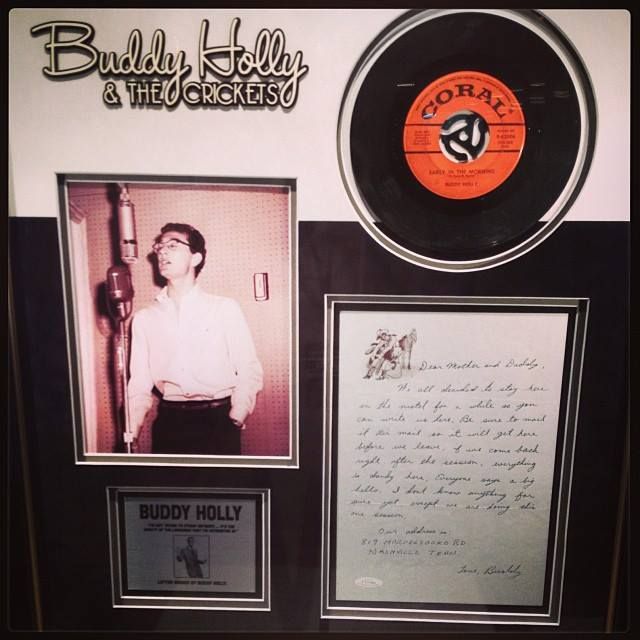 Buddy Holly
& THE CRICKETS
CORAL
EARLY IN THE MORNING
BUDDY HOLLY
Dear Mother and Daddy,
We all decided to stay here
in the motel for a while so you
can write us here. Be sure to mail
it air mail so it will get here
before we leave. If we come back
right after the session, everything
is dandy here. Everyone says a big
hello. I don't know anything for
sure yet except we are doing this
one session.
Our address is:
819 RD
NASHVILLE TENN.
Love, Buddy
BUDDY HOLLY